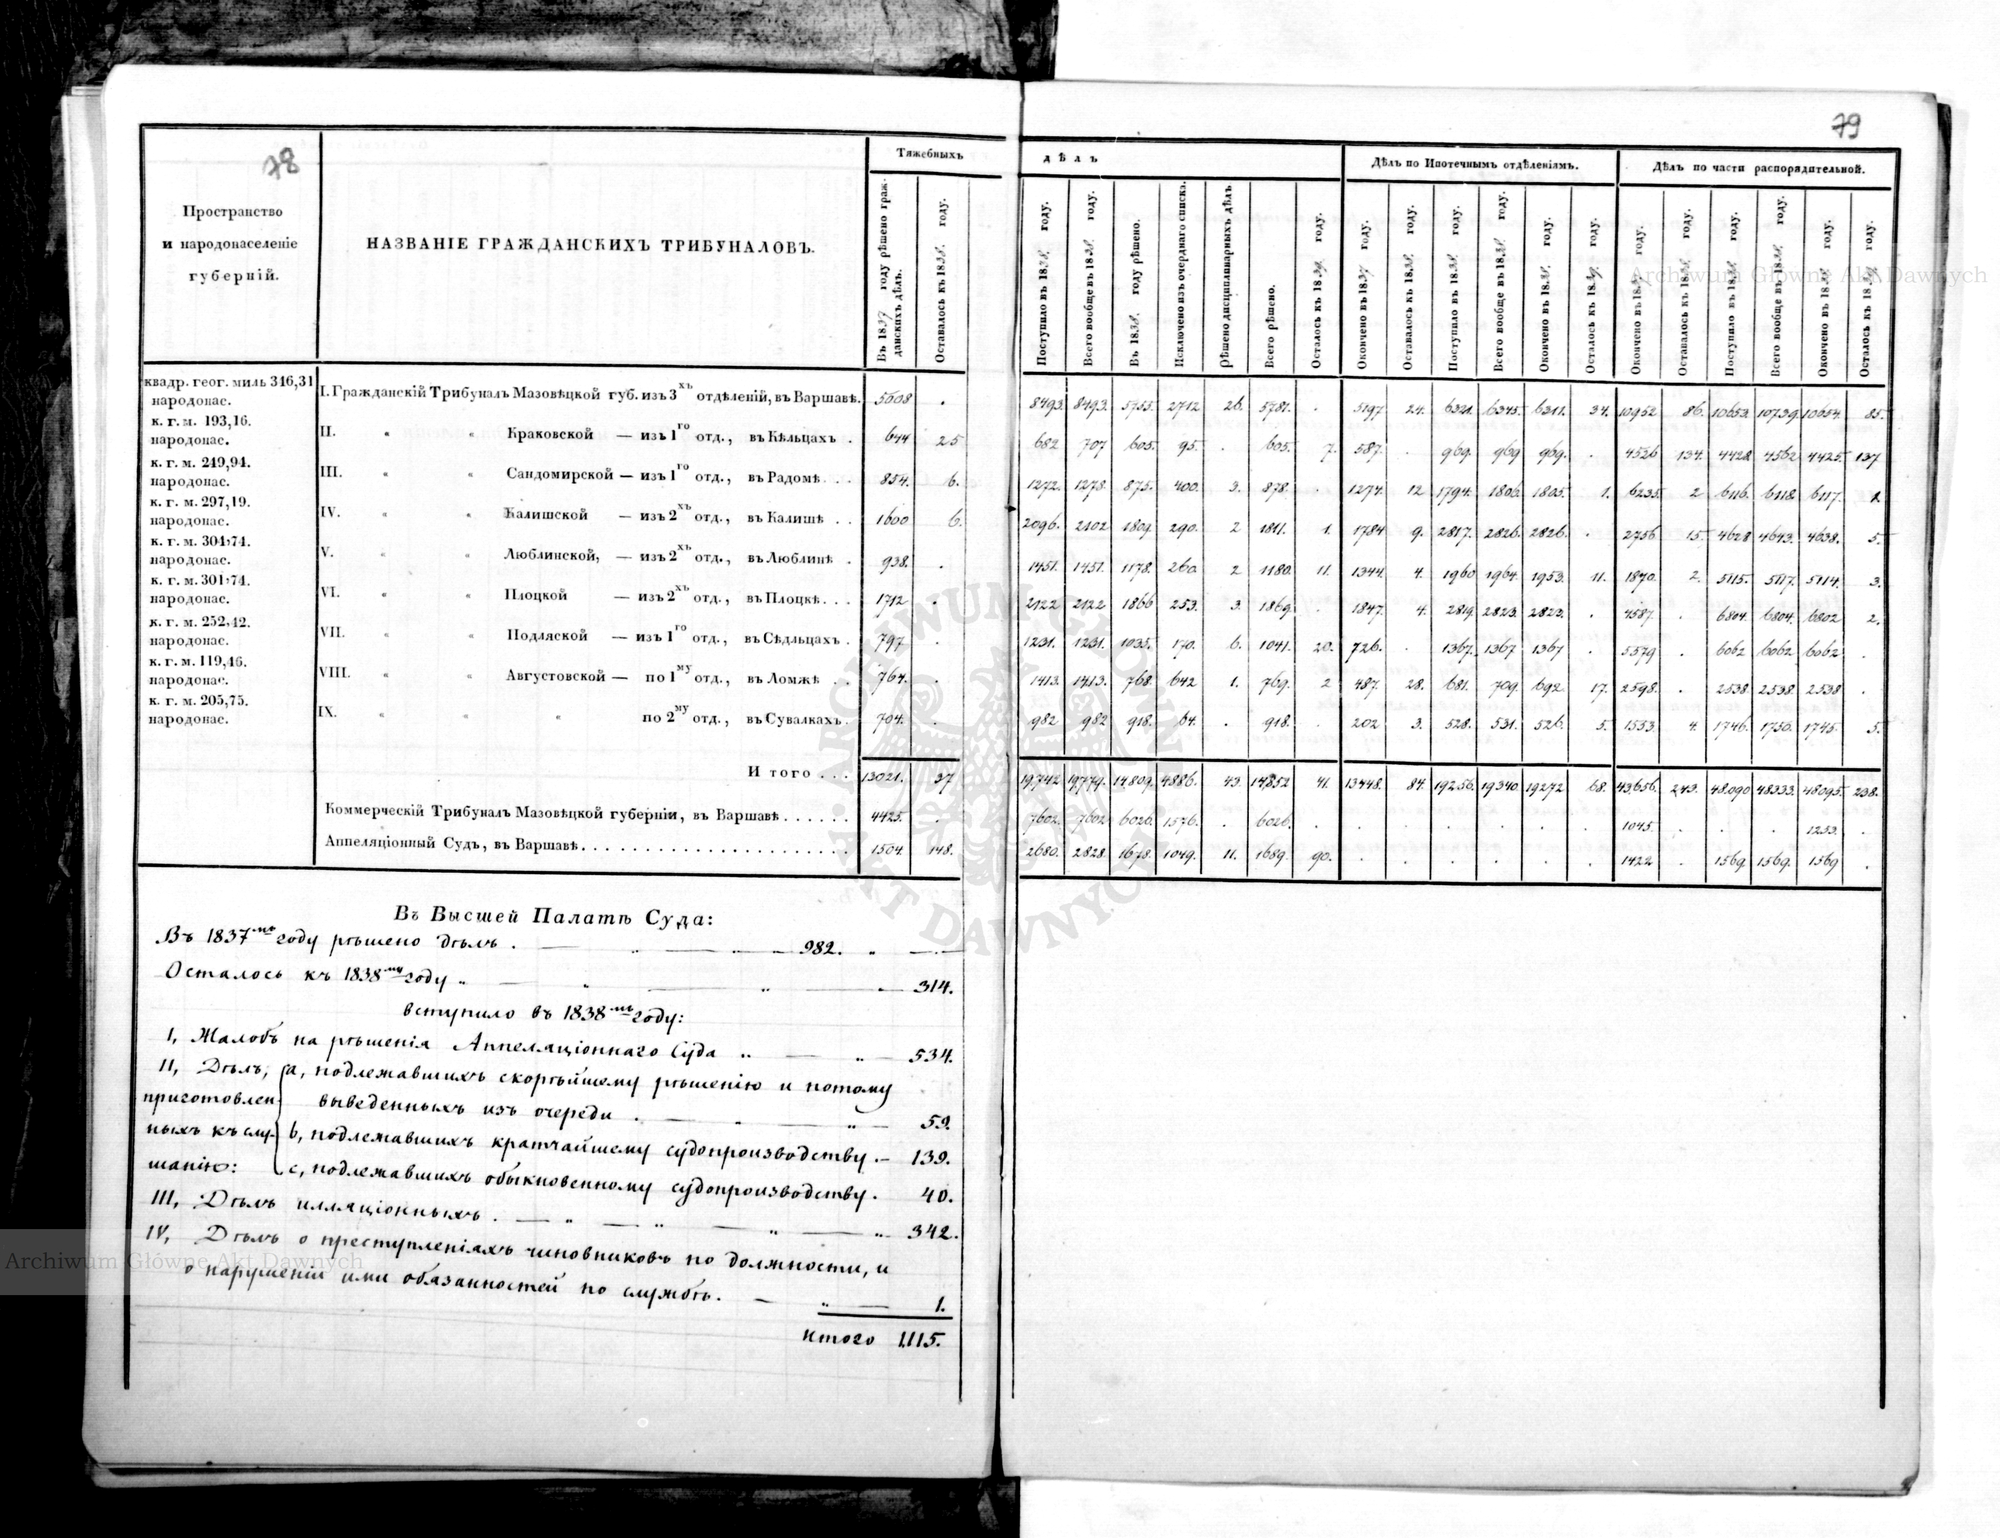 78
79
Пространство
и народонаселеніе
губерній.
НАЗВАНІЕ ГРАЖДАНСКИХЪ ТРИБУНАЛОВЪ.
Тяжебныхъ дѣлъ
Дѣлъ по Ипотечнымъ отдѣленіямъ.
Дѣлъ по части распорядительной.
Въ 1837 году рѣшено гражданскихъ дѣлъ.
Оставалось къ 1838. году.
Поступило въ 1838. году.
Всего вообще въ 1838. году.
Въ 1838. году рѣшено.
Исключено изъ очереднаго списка.
Рѣшено дисциплинарныхъ дѣлъ
Всего рѣшено.
Осталось къ 1839. году.
Окончено въ 1837 году.
Оставалось къ 1838. году.
Поступило въ 1838. году.
Всего вообще въ 1838. году.
Окончено въ 1838. году.
Осталось къ 1839. году.
Окончено въ 1837 году.
Оставалось къ 1838. году.
Поступило въ 1838. году.
Всего вообще въ 1838. году.
Окончено въ 1838. году.
Осталось къ 1839. году.
квадр. геог. миль 316,31
народонас.
I. Гражданскій Трибуналъ Мазовѣцкой губ. изъ 3хъ отдѣленій, въ Варшавѣ. 5508 . 8493. 8493. 5755. 2712 26. 5781. . 5197 24. 6321. 6345. 6311. 34. 10952 86. 10653. 10739. 10654. 85.
к. г. м. 193,16.
народонас.
II. « « Краковской — изъ 1го отд., въ Кѣльцахъ . 644 25 682 707 605. 95. . 605. 7. 587. . 969. 969 969. . 4526 134. 4428 4562 4425. 137
к. г. м. 249,94.
народонас.
III. « « Сандомирской — изъ 1го отд., въ Радомѣ . . . 854. 6. 1272. 1278 875. 400. 3. 878. . 1274. 12 1794. 1806. 1805. 1. 6235. 2 6116. 6118. 6117. 1.
к. г. м. 297,19.
народонас.
IV. « « Калишской — изъ 2хъ отд., въ Калишѣ . . 1600 6. 2096. 2102 1809. 290. 2 1811. 1. 1784 9. 2817. 2826. 2826. . 2756 15. 4628 4643. 4638. 5.
к. г. м. 304,74.
народонас.
V. « « Люблинской, — изъ 2хъ отд., въ Люблинѣ . 938. . 1451. 1451. 1178. 260. 2 1180. 11. 1344. 4. 1960 1964. 1953. 11. 1840. 2. 5115. 5117. 5114. 3.
к. г. м. 301,74.
народонас.
VI. « « Плоцкой — изъ 2хъ отд., въ Плоцкѣ . . . 1712 . 2122 2122 1866 253. 3. 1869. . 1847. 4. 2819. 2823. 2823. . 4587. . 6804. 6804. 6802 2.
к. г. м. 252,42.
народонас.
VII. « « Подляской — изъ 1го отд., въ Сѣдльцахъ . 797 . 1231. 1231. 1035. 170. 6. 1041. 20. 726. . 1367. 1367 1367 . 5579 . 6062 6062 6062 .
к. г. м. 119,46.
народонас.
VIII. « « Августовской — по 1му отд., въ Ломжѣ . . 764. . 1413. 1413. 768. 642 1. 769. 2 487. 28. 681. 709. 692. 17. 2598. . 2538 2538 2538 .
к. г. м. 205,75.
народонас.
IX. « « « по 2му отд., въ Сувалкахъ . 704. . 982 982 918. 64. . 918. . 202 3. 528. 531. 526. 5. 1553. 4. 1746. 1750. 1745. 5.
Итого . . . 13021. 37 19,742 19,779. 14,809. 4886. 43. 14,852 41. 13448. 84. 19256. 19340. 19272 68. 43,656. 243. 48,090 48333. 48,095. 238.
Коммерческій Трибуналъ Мазовѣцкой губерніи, въ Варшавѣ . . . . . . 4425. . 7602. 7602 6026. 1576. . 6026. . . . . . . . 1045. . . . 1253. .
Аппеляціонный Судъ, въ Варшавѣ . . . . . . . . 1504. 148. 2680. 2828. 1678. 1049. 11. 1689. 90. . . . . . . 1422 . 1569. 1569. 1569 .
Въ Высшей Палатѣ Суда:
Въ 1837мъ году рѣшено дѣлъ . 982.
Осталось къ 1838му году 314.
вступило въ 1838мъ году:
I, Жалобъ на рѣшенія Аппеляціоннаго Суда 534.
II, Дѣлъ, приготовленныхъ къ слушанію:
a, подлежавшихъ скорѣйшему рѣшенію и потому
выведенныхъ изъ очереди . 59.
b, подлежавшихъ кратчайшему судопроизводству. — 139.
c, подлежавшихъ обыкновенному судопроизводству. 40.
III, Дѣлъ илляціонныхъ . 342.
IV, Дѣлъ о преступленіяхъ чиновниковъ по должности, и
о нарушеніи ими обязанностей по службѣ. 1.
Итого 1,115.
Archiwum Główne Akt Dawnych
Archiwum Główne Akt Dawnych
ARCHIWUM GŁÓWNE AKT DAWNYCH